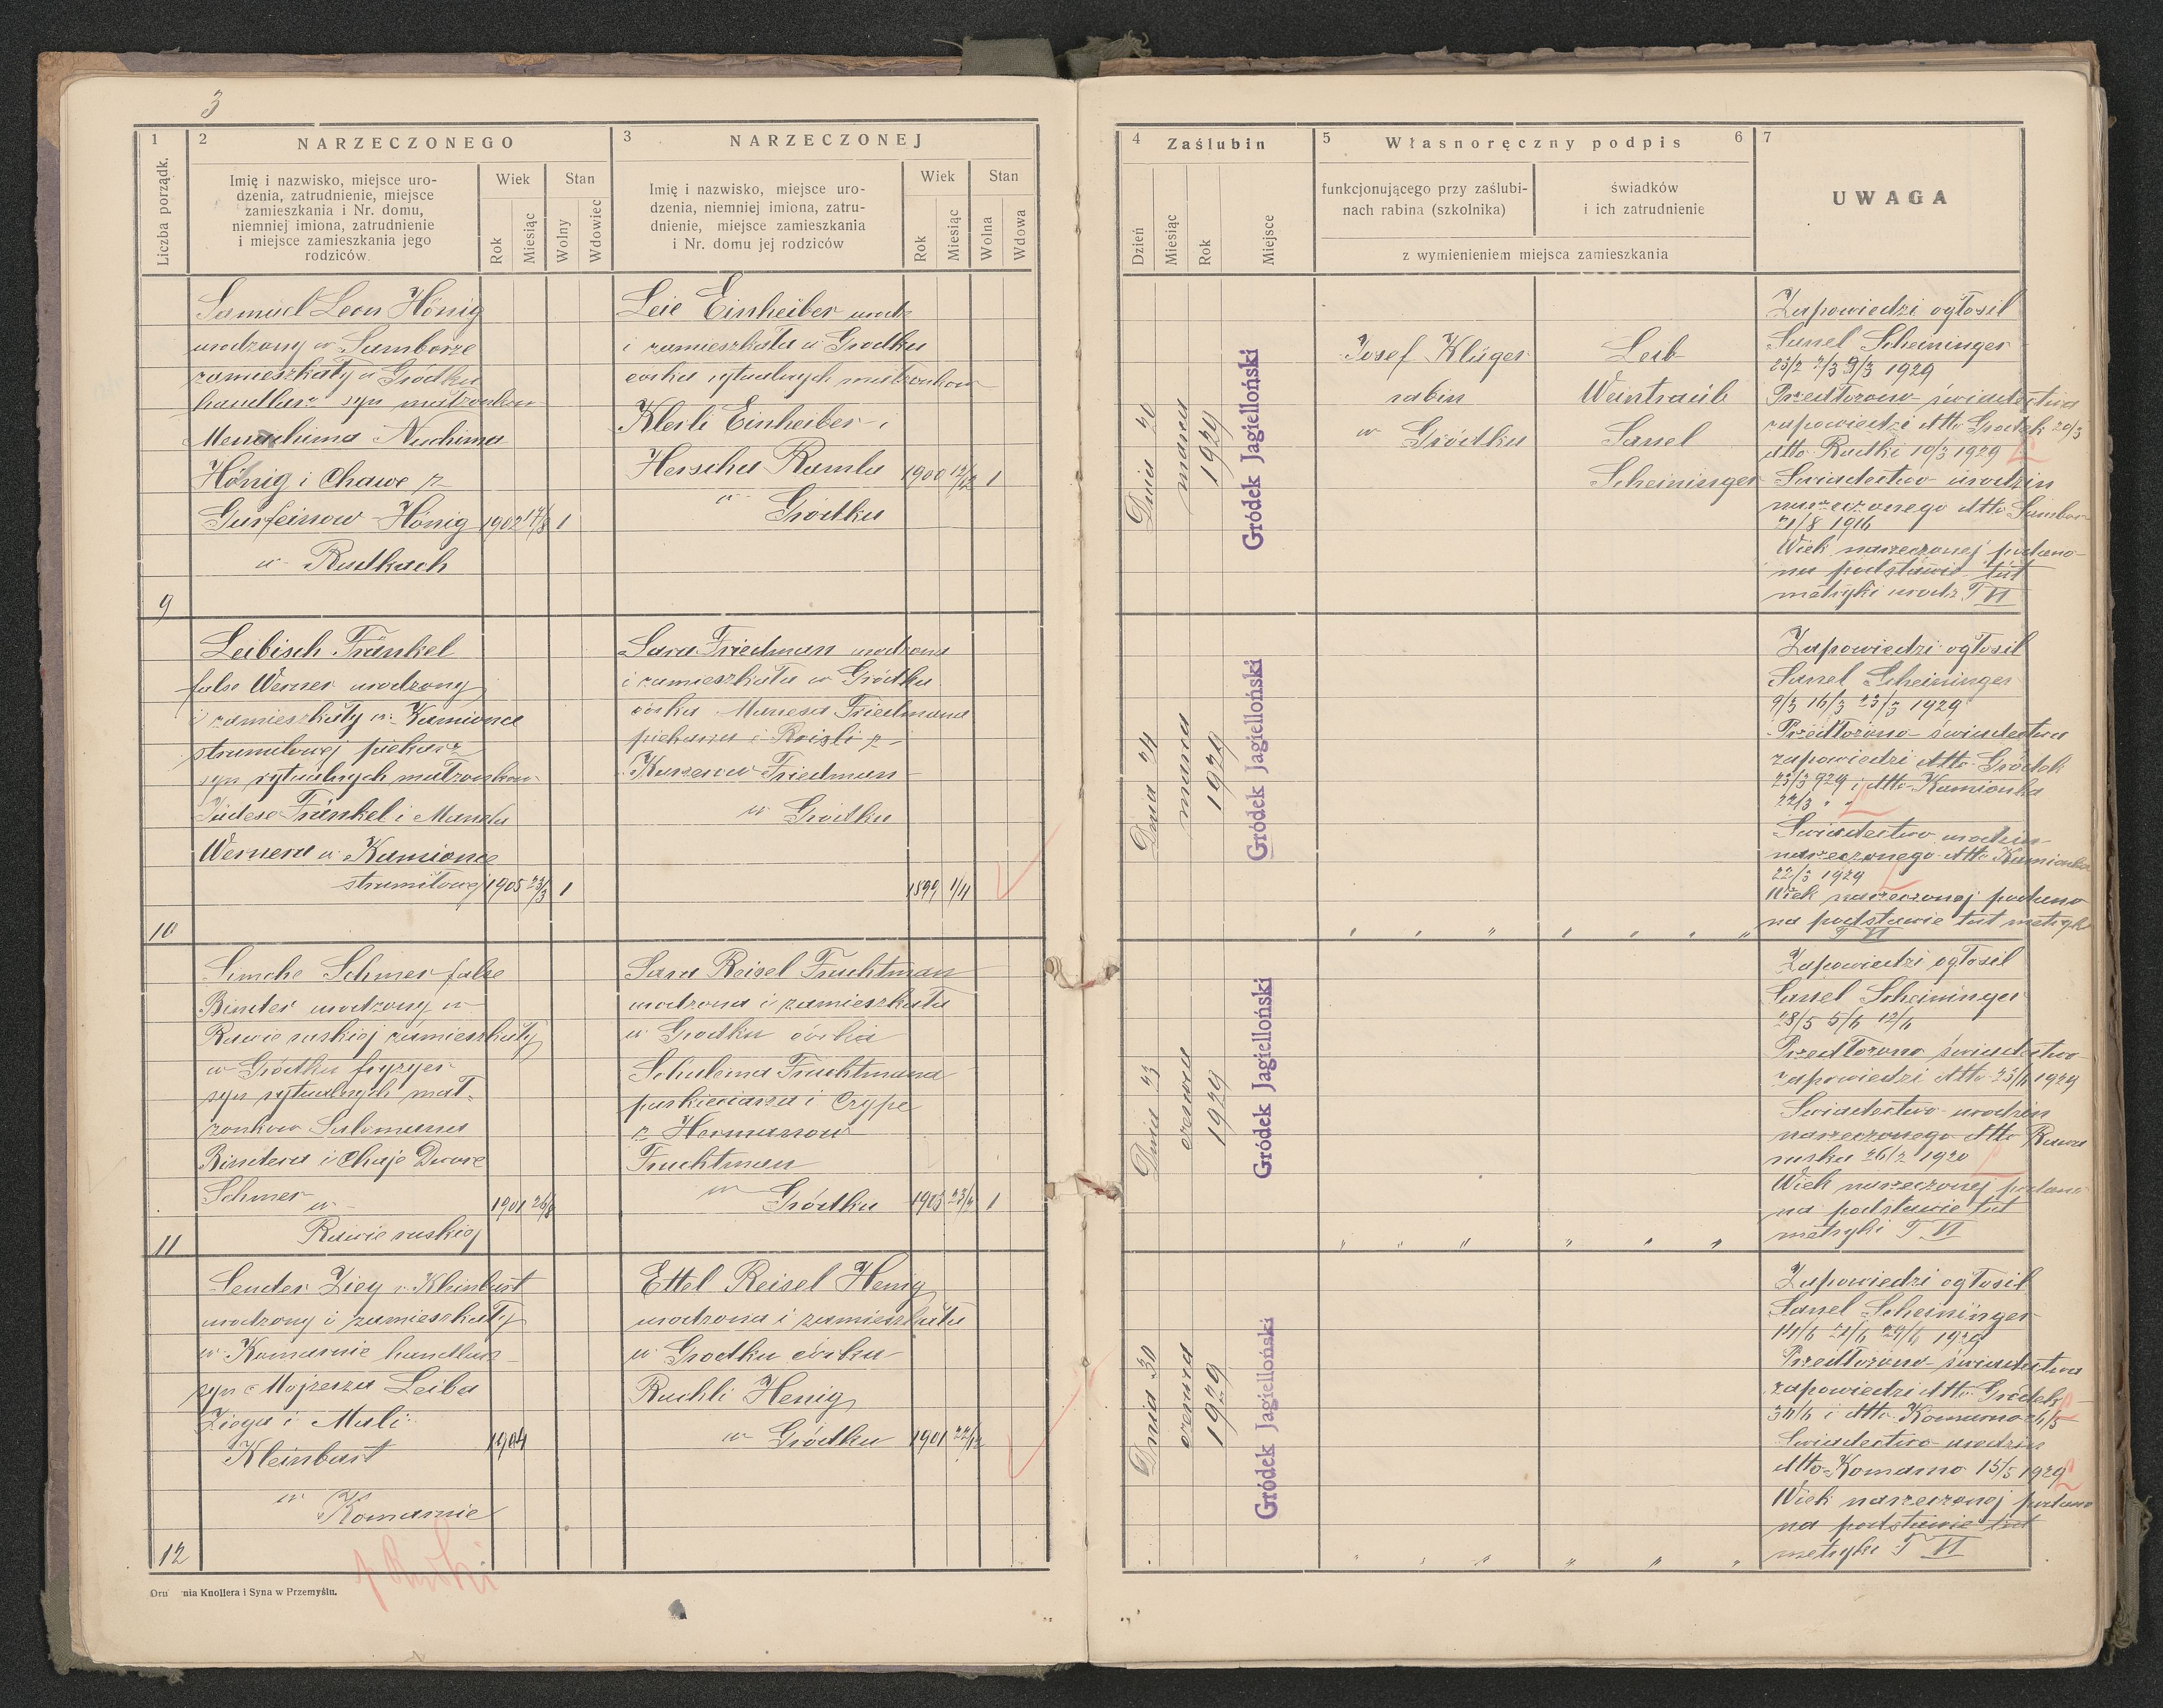 3
1
Liczba porządk.
2
NARZECZONEGO
Imię i nazwisko, miejsce uro-
dzenia, zatrudnienie, miejsce
zamieszkania i Nr. domu,
niemniej imiona, zatrudnienie
i miejsce zamieszkania jego
rodziców.
Wiek
Rok
Miesiąc
Stan
Wolny
Wdowiec
3
NARZECZONEJ
Imię i nazwisko, miejsce uro-
dzenia, niemniej imiona, zatru-
dnienie, miejsce zamieszkania
i Nr. domu jej rodziców
Wiek
Rok
Miesiąc
Stan
Wolna
Wdowa
4
Zaślubin
Dzień
Miesiąc
Rok
Miejsce
5
Własnoręczny podpis
6
funkcjonującego przy zaślubi-
nach rabina (szkolnika)
świadków
i ich zatrudnienie
z wymienieniem miejsca zamieszkania
7
UWAGA
Samuel Leon Hönig
urodzony w Samborze
zamieszkały w Gródku
handlarz syn małżonków
Menachima Nuchima
Hönig i Chawe z
Gurfeinow Hönig 1902 17/8 1
w Rudkach
9
Leie Einheiber urodz
i zamieszkała w Grodku
corka rytualnych małżonkow
Klerli Einheiber i
Herscha Ramla 1900 12/12 1
w Gródku
Dnia 20
marca
1929
Gródek Jagielloński
Josef Klüger
rabin
w Gródku
Leib
Weintraub
Sanel
Scheininger
Zapowiedzi ogłosił
Sanel Scheininger
23/2 2/3 9/3 1929
Przedłożono świadectwa
zapowiedzi dtto Grodek 20/3
dtto Rudki 10/3 1929
Swiadectwo urodzin
narzeczonego dtto Sambor
21/8 1916
Wiek narzeczonej podano
na podstawie tut
metryki urodz T VI
Leibisch Fränkel
false Werner urodzony
i zamieszkały w Kamionce
strumiłowej piekarz
syn rytualnych małżonkow
Judese Fränkel i Manela
Wernera w Kamionce
strumiłowej 1905 23/3 1
10
Sara Friedman urodzona
i zamieszkała w Gródku
córka Manesa Friedmana
piekarza i Reisli z
Friedman
w Gródku
1899 1/11
Dnia 24
marca
1929
Gródek Jagielloński
" " " " " " "
Zapowiedzi ogłosił
Sanel Scheininger
9/3 16/3 23/3 1929
Przedłożono świadectwa
zapowiedzi dtto Gródek
23/3 929 i dtto Kamionka
22/3 " "
Swiadectwo urodzin
narzeczonego dtto Kamionka
22/3 1929
Wiek narzeczonej podano
na podstawie tut metryk
T VI
Simche Schmer false
Binder urodzony w
Rawie ruskiej zamieszkały
w Gródku fryzyer
syn rytualnych mał-
żonkow Salomana
Bindera i Chaje Dwore
Schmer w 1901 26/8
Rawie ruskiej
11
Sara Reisel Fruchtman
urodzona i zamieszkała
w Grodku córka
Schulema Fruchtmana
paskieciarza i Czype
z Hermanow
Fruchtman
w Gródku 1903 23/2 1
Dnia 23
czerwca
1929
Gródek Jagielloński
" " " " " "
Zapowiedzi ogłosił
Sanel Scheininger
28/5 5/6 12/6
Przedłożono świadectwo
zapowiedzi dtto 23/6 1929
Swiadectwo urodzin
narzeczonego dtto Rawa
ruska 26/2 1920
Wiek narzeczonej podano
na podstawie tut
metryki T VI
Sender Zieg v. Kleinbart
urodzony i zamieszkały
w Komarnie handlarz
syn Mojzesza Leiba
Ziega i Mali
Kleinbart 1904
w
Komarnie
12
Ettel Reisel Henig
urodzona i zamieszkała
w Grodku córka
Ruchli Henig
w Gródku 1901 22/12
Dnia 30
czerwca
1929
Gródek Jagielloński
" " " " " "
Zapowiedzi ogłosił
Sanel Scheininger
14/6 21/6 29/6 1929
Przedłożono świadectwa
zapowiedzi dtto Gródek
30/6 i dtto Komarno
Swiadectwo urodzin
dtto Komarno 15/5 1929
Wiek narzeczonej podano
na podstawie tut
metryki T VI
nia Knollera i Syna w Przemyślu.